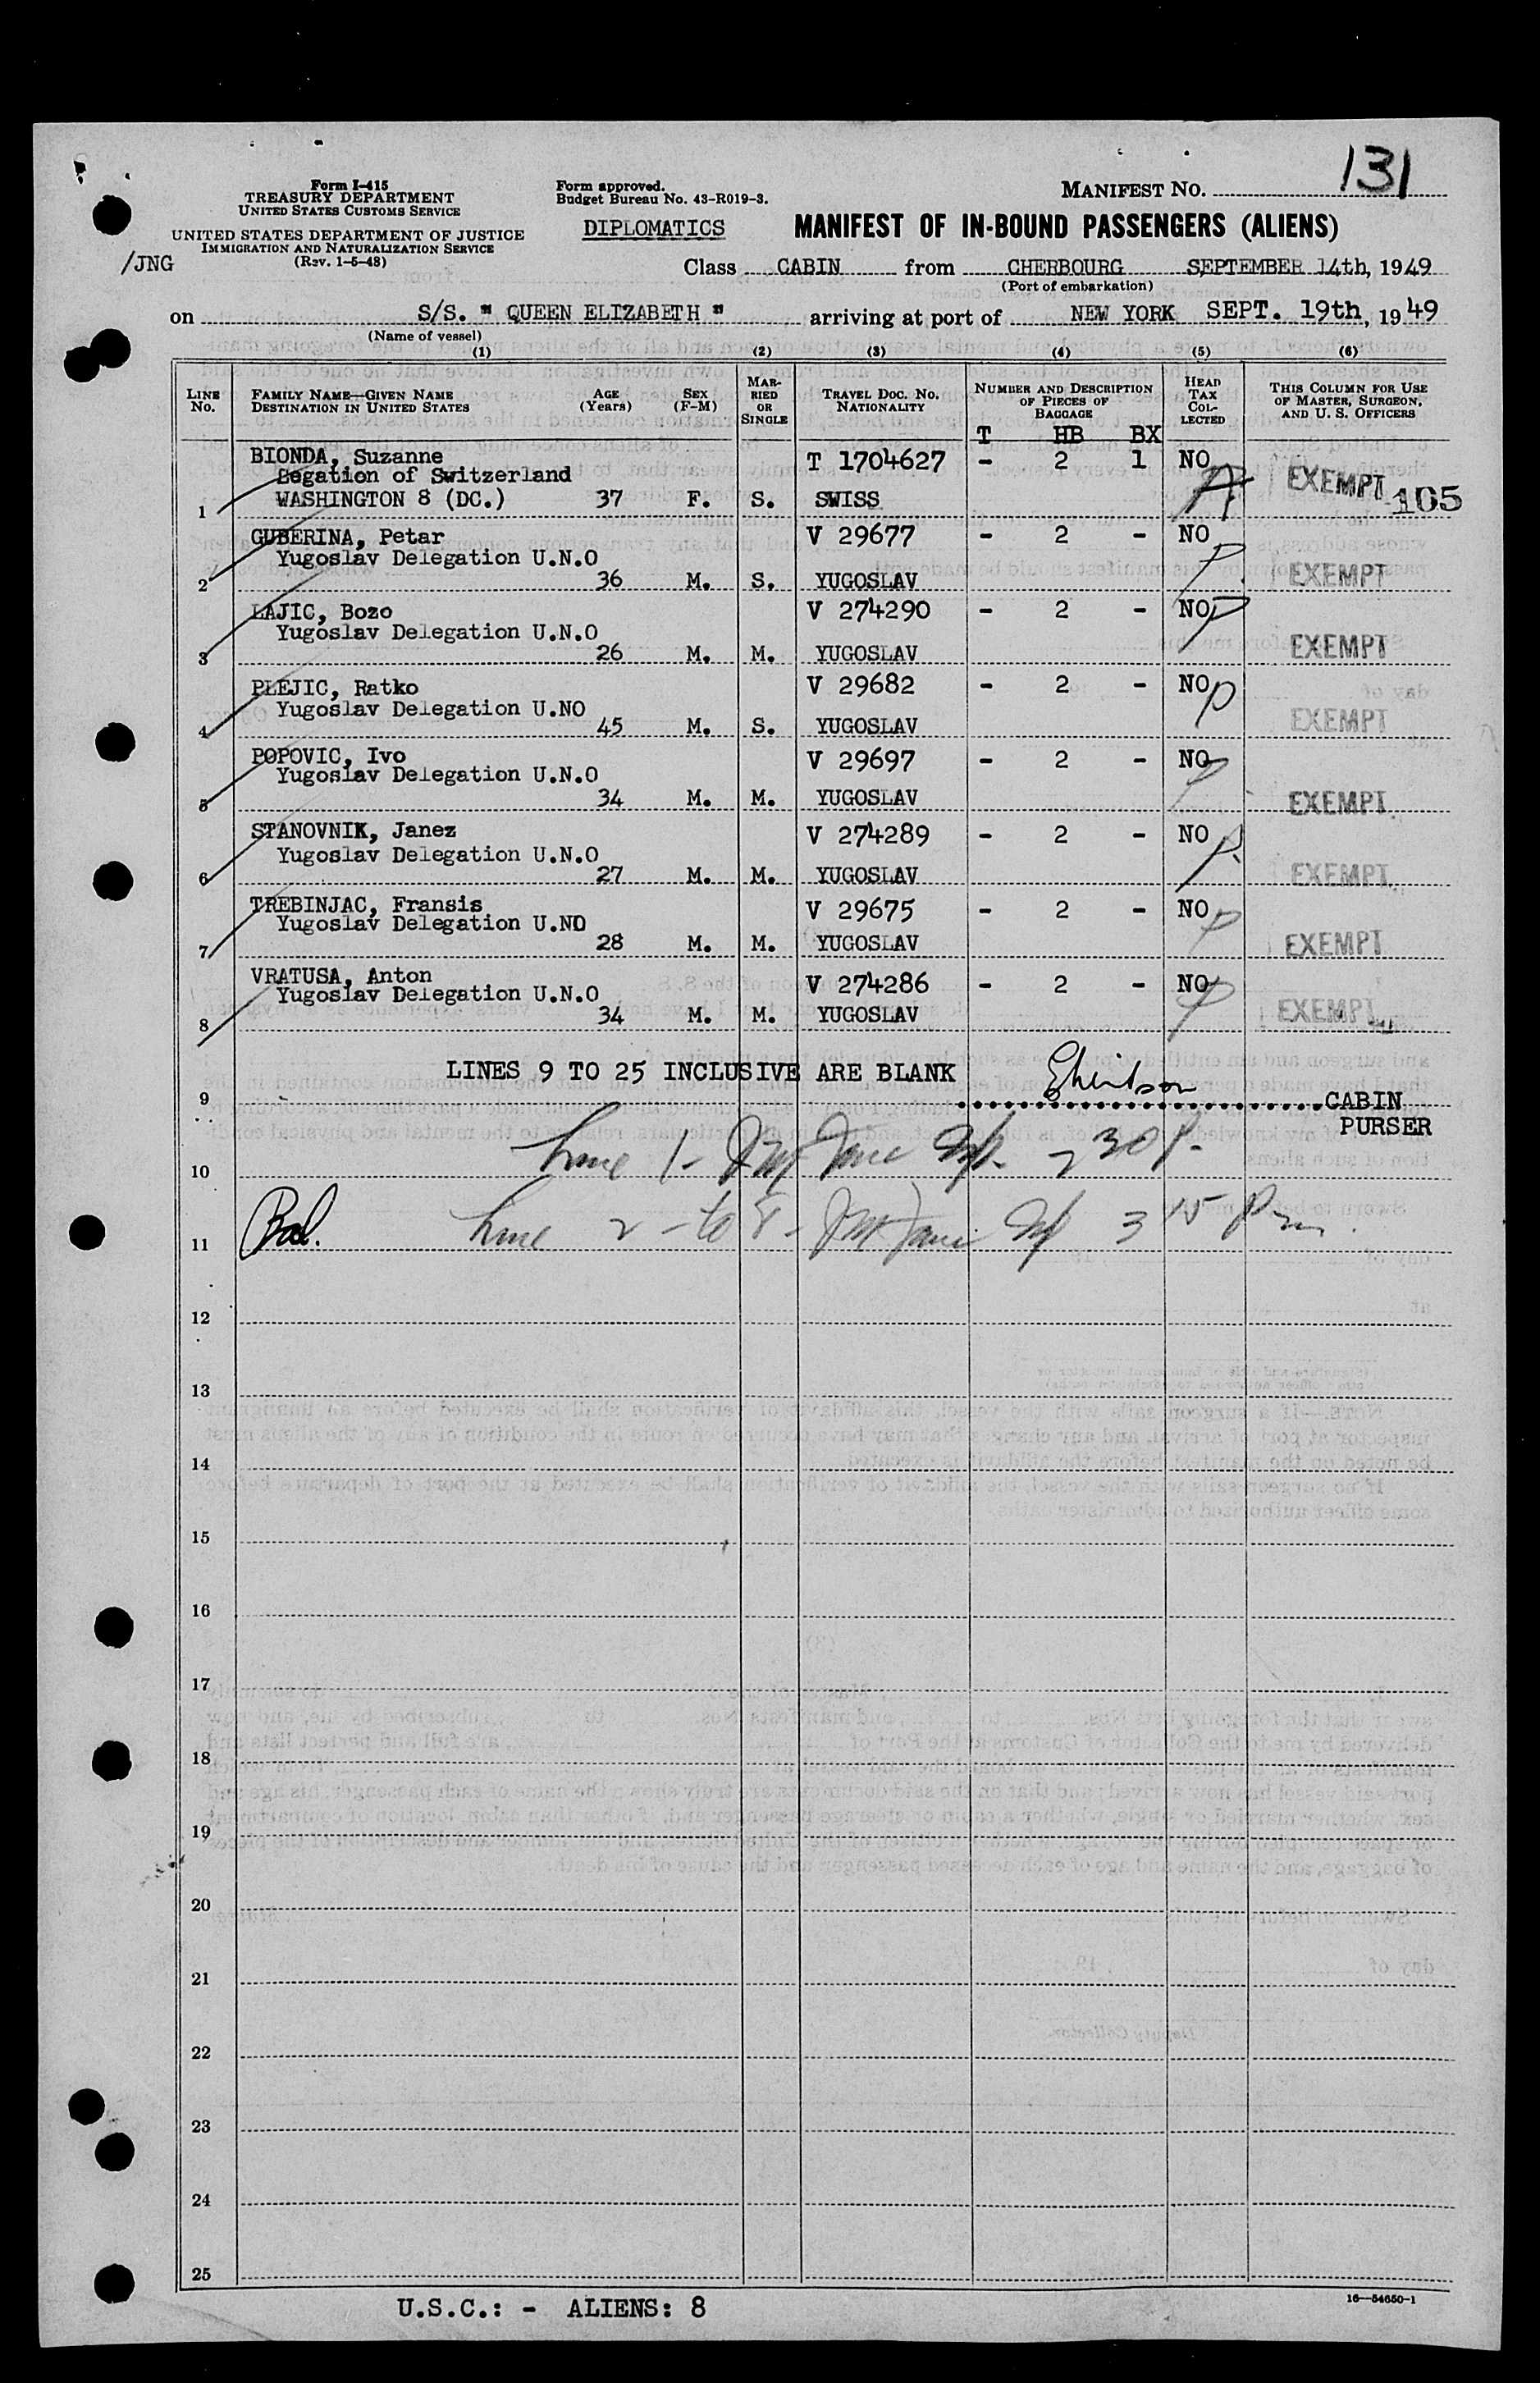 131
Form I-415
TREASURY DEPARTMENT
UNITED STATES CUSTOMS SERVICE
UNITED STATES DEPARTMENT OF JUSTICE
IMMIGRATION AND NATURALIZATION SERVICE
(Rev. 1-5-48)
/JNG
Form approved.
Budget Bureau No. 43-R019-3.
DIPLOMATICS
MANIFEST NO.
MANIFEST OF IN-BOUND PASSENGERS (ALIENS)
Class CABIN from CHERBOURG SEPTEMBER 14th, 1949
(Port of embarkation)
on S/S. " QUEEN ELIZABETH " arriving at port of NEW YORK SEPT. 19th, 1949
(Name of vessel)
(1) (2) (3) (4) (5) (6)
LINE No. FAMILY NAME—GIVEN NAME DESTINATION IN UNITED STATES AGE (Years) SEX (F-M) MARRIED OR SINGLE TRAVEL DOC. NO. NATIONALITY NUMBER AND DESCRIPTION OF PIECES OF BAGGAGE HEAD TAX COLLECTED THIS COLUMN FOR USE OF MASTER, SURGEON, AND U. S. OFFICERS
T HB BX
BIONDA, Suzanne T 1704627 - 2 1 NO
Legation of Switzerland EXEMPT 105
1 WASHINGTON 8 (DC.) 37 F. S. SWISS
GUBERINA, Petar V 29677 - 2 - NO
Yugoslav Delegation U.N.O
2 36 M. S. YUGOSLAV EXEMPT
LAJIC, Bozo V 274290 - 2 - NO
Yugoslav Delegation U.N.O
3 26 M. M. YUGOSLAV EXEMPT
PLEJIC, Ratko V 29682 - 2 - NO
Yugoslav Delegation U.NO
4 45 M. S. YUGOSLAV EXEMPT
POPOVIC, Ivo V 29697 - 2 - NO
Yugoslav Delegation U.N.O
5 34 M. M. YUGOSLAV EXEMPT
STANOVNIK, Janez V 274289 - 2 - NO
Yugoslav Delegation U.N.O
6 27 M. M. YUGOSLAV EXEMPT
TREBINJAC, Fransis V 29675 - 2 - NO
Yugoslav Delegation U.NO
7 28 M. M. YUGOSLAV EXEMPT
VRATUSA, Anton V 274286 - 2 - NO
Yugoslav Delegation U.N.O
8 34 M. M. YUGOSLAV EXEMPT
LINES 9 TO 25 INCLUSIVE ARE BLANK
9 CABIN
PURSER
10 Line 1 - 230 P.
11 Line 2 - to 8 - 3 15 Pm.
12
13
14
15
16
17
18
19
20
21
22
23
24
25
U.S.C.: - ALIENS: 8
16—54650-1